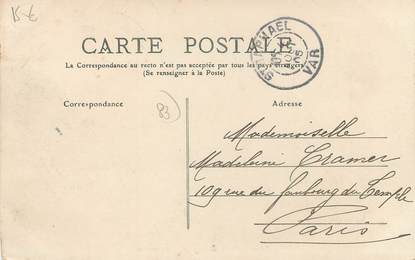 15 €
CARTE POSTALE
ST RAPHAEL
VAR
La Correspondance au recto n'est pas acceptée par tous les pays étrangers
(Se renseigner à la Poste)
Correspondance
83
Adresse
Mademoiselle
Madeleine Cramer
109 rue du faubourg du Temple
Paris